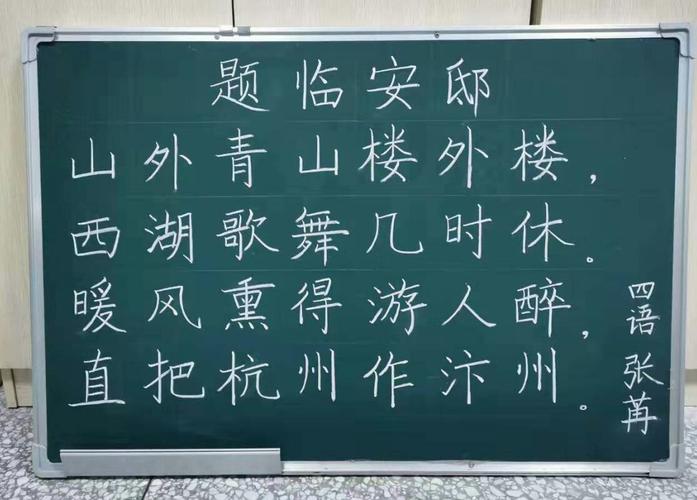 题临安邸
山外青山楼外楼，
西湖歌舞几时休。
暖风熏得游人醉，
直把杭州作汴州。
四语 张苒